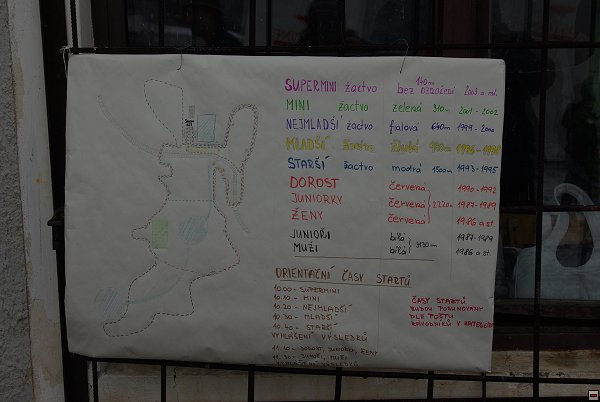 SUPERMINI žactvo 140m bez označení 2003 a ml.
MINI žactvo zelená 310m 2001-2002
NEJMLADŠÍ žactvo fialová 640m 1999-2000
MLADŠÍ žactvo žlutá
STARŠÍ žactvo modrá 1500m 1993-1995
DOROST červená 1990-1992
JUNIORKY červená 2220m 1987-1989
ŽENY červená 1986 a st.
JUNIOŘI bílá 1987-1989
MUŽI bílá 3130m 1986 a st.
ORIENTAČNÍ ČASY STARTŮ
10.00 - SUPERMINI
10.10 - MINI
10.20 - NEJMLADŠÍ
10.30 - MLADŠÍ
10.40 - STARŠÍ
VYHLÁŠENÍ VÝSLEDKŮ
11.10 - DOROST, JUNIORKY, ŽENY
11.30 - JUNIOŘI, MUŽI
VYHLÁŠENÍ VÝSLEDKŮ
ČASY STARTŮ
BUDOU POSUNOVÁNY
DLE POČTU
ZÁVODNÍKŮ V KATEGORII